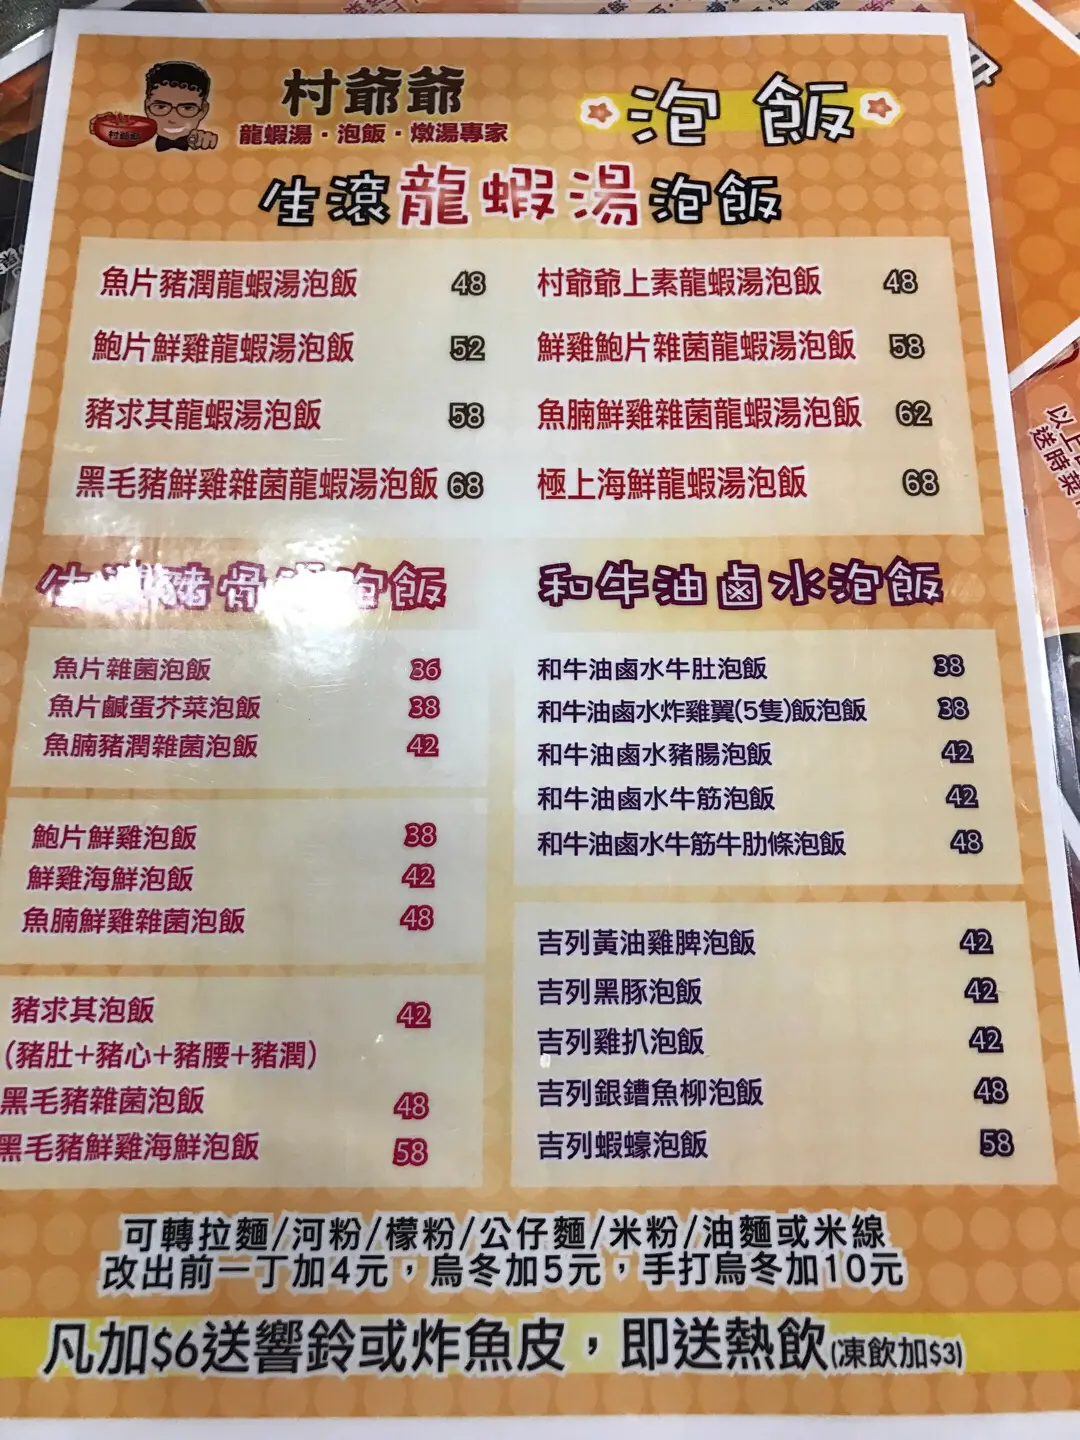 村爺爺
龍蝦湯・泡飯・燉湯專家
泡飯
村爺爺
生滾龍蝦湯泡飯
魚片豬潤龍蝦湯泡飯 48
鮑片鮮雞龍蝦湯泡飯 52
豬求其龍蝦湯泡飯 58
黑毛豬鮮雞雜菌龍蝦湯泡飯 68
村爺爺上素龍蝦湯泡飯 48
鮮雞鮑片雜菌龍蝦湯泡飯 58
魚腩鮮雞雜菌龍蝦湯泡飯 62
極上海鮮龍蝦湯泡飯 68
豬骨湯泡飯
魚片雜菌泡飯 36
魚片鹹蛋芥菜泡飯 38
魚腩豬潤雜菌泡飯 42
鮑片鮮雞泡飯 38
鮮雞海鮮泡飯 42
魚腩鮮雞雜菌泡飯 48
豬求其泡飯 42
(豬肚+豬心+豬腰+豬潤)
黑毛豬雜菌泡飯 48
黑毛豬鮮雞海鮮泡飯 58
和牛油鹵水泡飯
和牛油鹵水牛肚泡飯 38
和牛油鹵水炸雞翼(5隻)飯泡飯 38
和牛油鹵水豬腸泡飯 42
和牛油鹵水牛筋泡飯 42
和牛油鹵水牛筋牛肋條泡飯 48
吉列黃油雞脾泡飯 42
吉列黑豚泡飯 42
吉列雞扒泡飯 42
吉列銀鱈魚柳泡飯 48
吉列蝦蠔泡飯 58
可轉拉麵/河粉/檬粉/公仔麵/米粉/油麵或米線
改出前一丁加4元，烏冬加5元，手打烏冬加10元
凡加$6送響鈴或炸魚皮，即送熱飲(凍飲加$3)
以上
送時菜